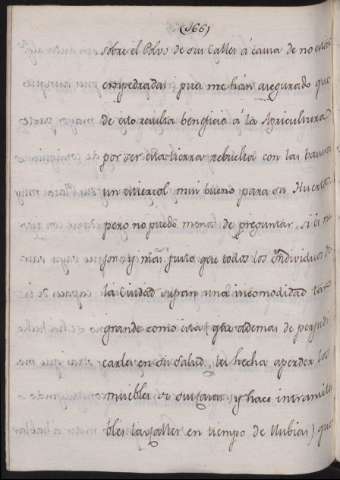 (166)
sobre el Polvo de sus Calles á causa de no estar
empedradas pues me hán asegurado que
de esto resulta beneficio á la Agricultura
por ser esta tierra rebuelta con las basuras
un estiercol mui bueno para sus Huertas
pero no puedo menos de preguntar, si és me
jor, y más justo que todos los Individuos de
la Ciudad sufran una incomodidad tan
grande como esta (que ademas de perjudi
carles en su salud, les hecha aperder los
muebles de sus casas y hace intransita
bles las calles en tiempo de llubias) que